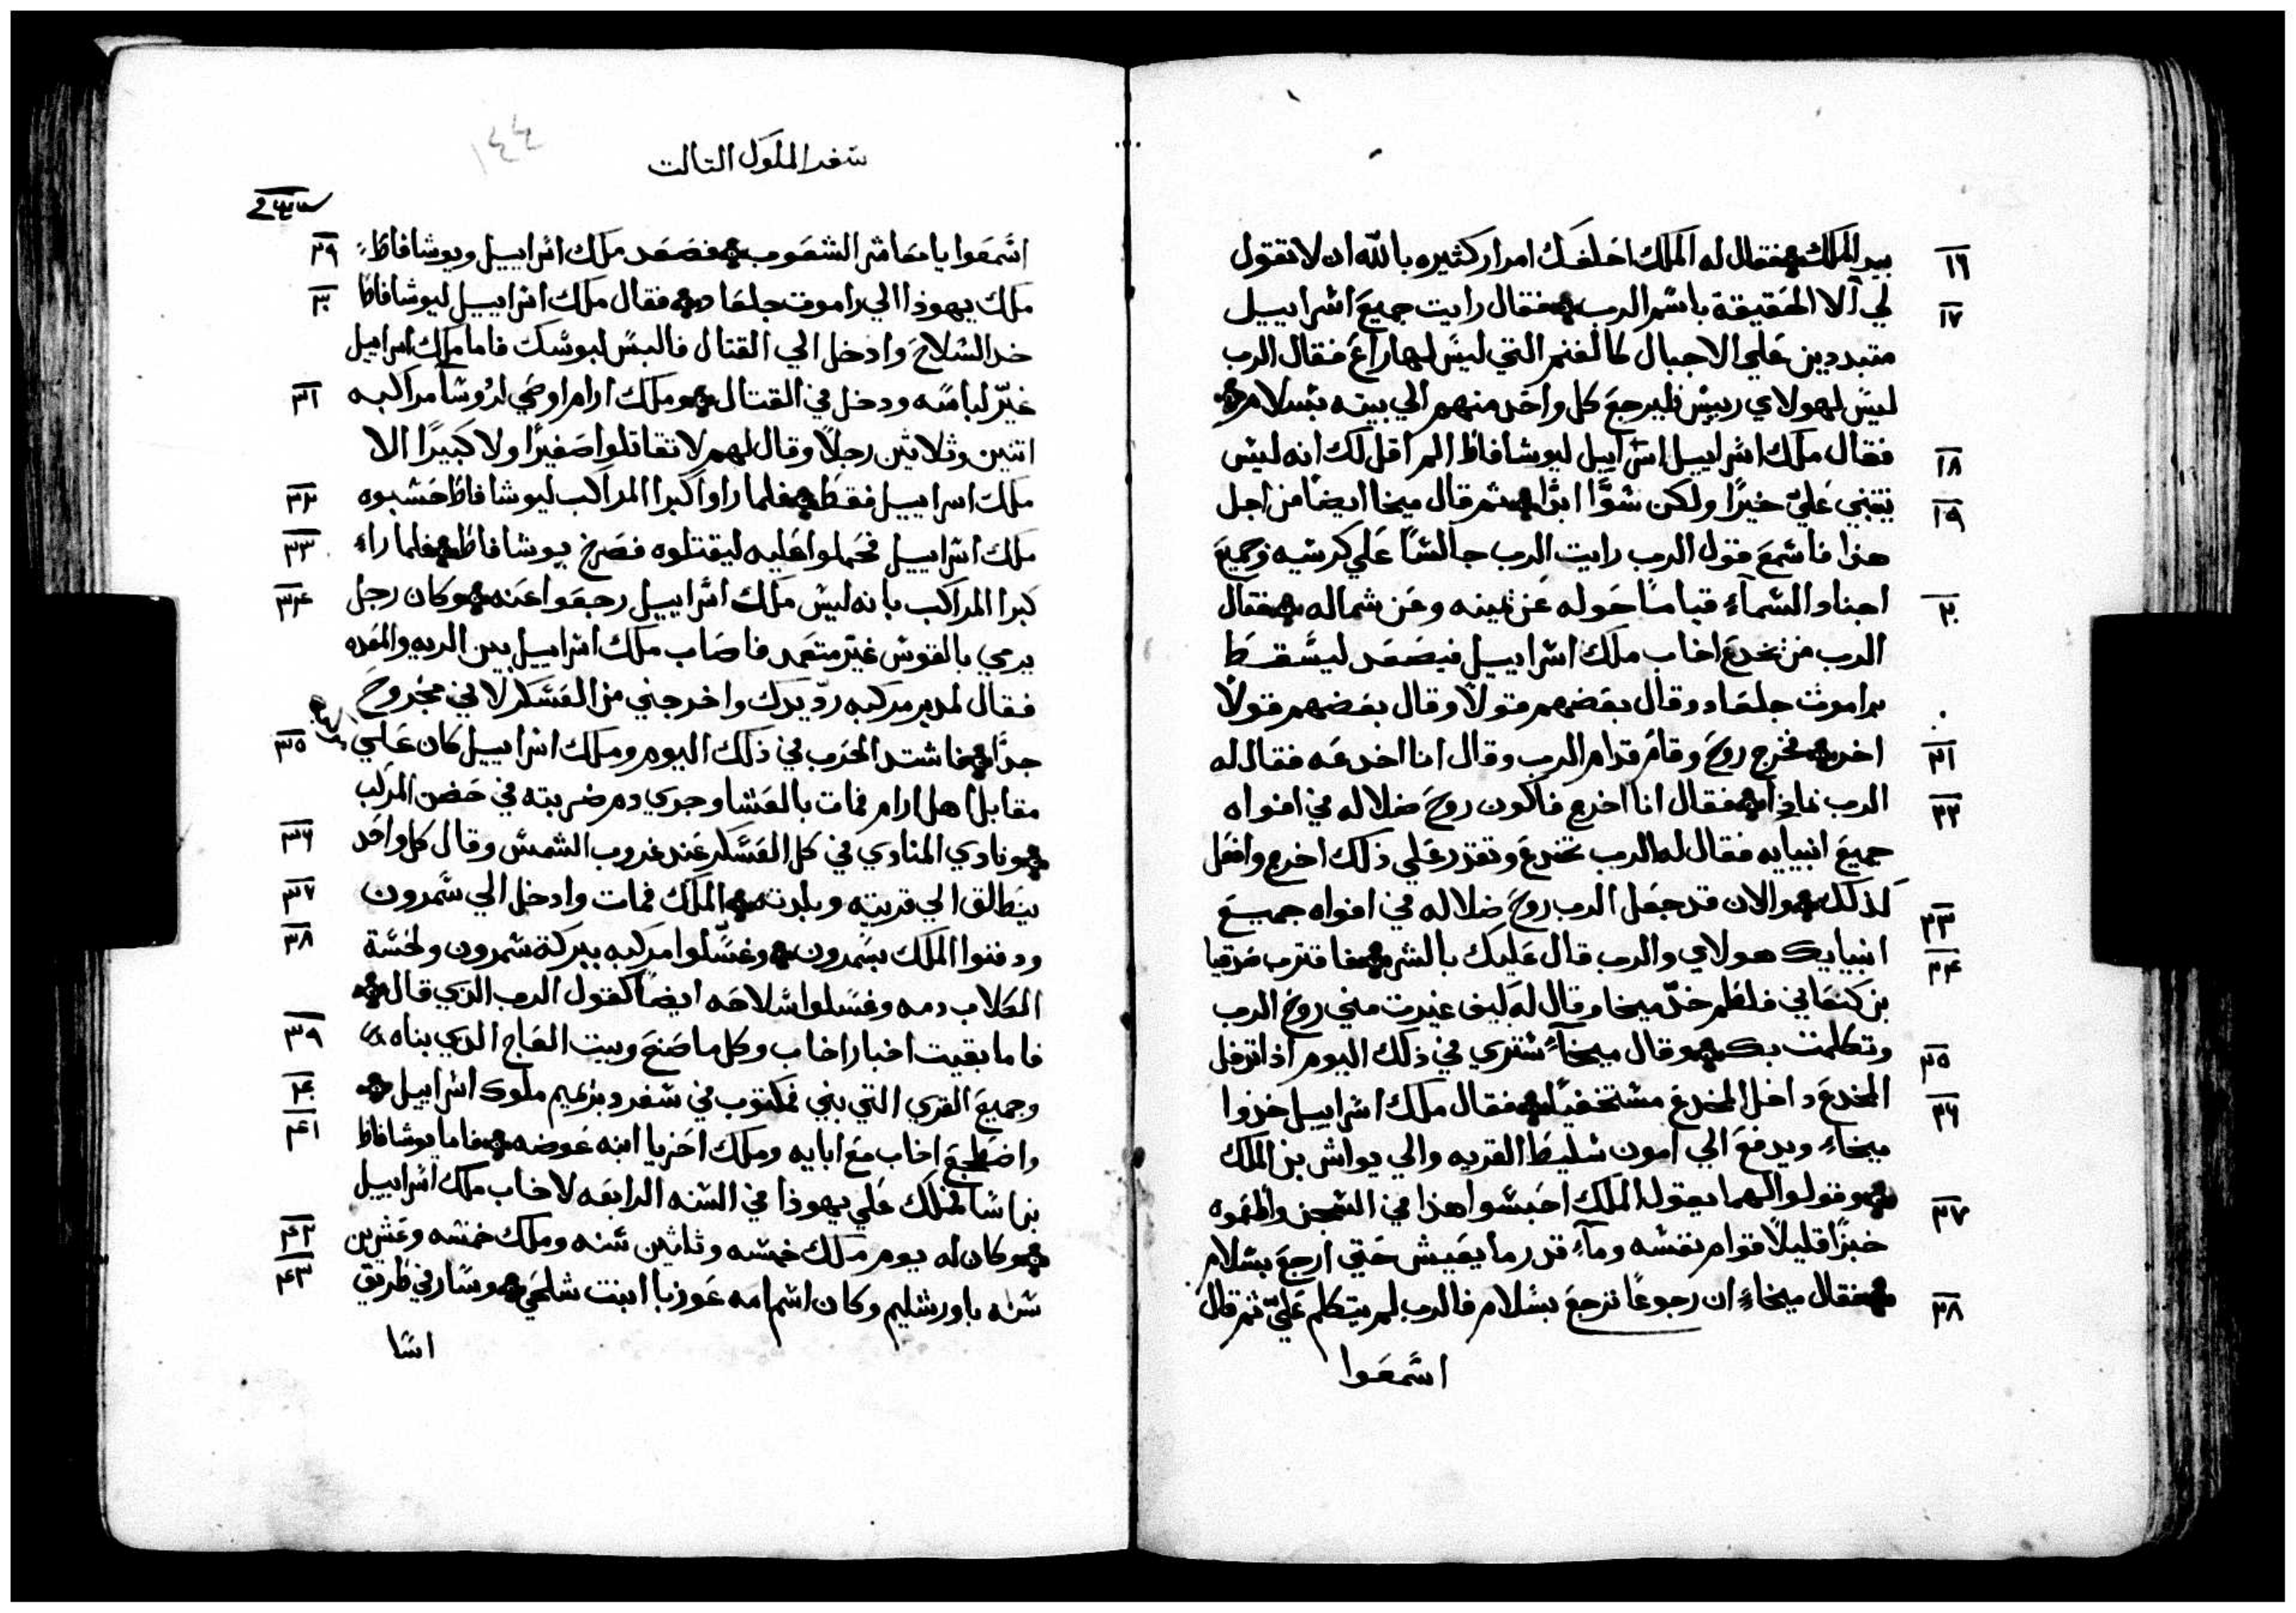 بيد الملك فقال له الملك احلفك امرار كثيره بالله ان لا تقول ١٦
لي الا الحقيقة باسم الرب فقال رايت جميع اسراييل ١٧
متبددين علي الاجبال كالغنم التي ليس لها راع فقال الرب
ليس لهولاي رييس فليرجع كل واحد منهم الي بيته بسلام
فقال ملك اسراييل اسراييل ليوشافاظ الم اقل لك انه ليس ١٨
يتنبي علي خيرًا ولكن سوًا ابدًا ثم قال ميخا ايضا من اجل ١٩
هذا فاسمع قول الرب رايت الرب جالسًا علي كرسيه وجميع
اجناد السمآء قيامًا حوله عن يمينه وعن شماله فقال ٢٠
الرب من يخدع اخاب ملك اسراييل فيصعد ليسقط
براموث جلعاد وقال بعضهم قولًا وقال بعضهم قولًا
اخر فخرج روح وقام قدام الرب وقال انا اخدعه فقال له ٢١
الرب بماذا فقال انا اخرج فاكون روح ضلاله في افواه ٢٢
جميع انبيايه فقال له الرب تخدع وتقدر علي ذلك اخرج وافعل
كذلك والان قد جعل الرب روح ضلاله في افواه جميع ٢٣
انبيايك هولاي والرب قال عليك بالشر فاقترب صدقيا ٢٤
بن كنعاني فلطم خدّ ميخا وقال له ليف عبرت مني روح الرب
وتكلمت بك وقال ميخآء ستري في ذلك اليوم اذا تدخل ٢٥
المخدع داخل المخدع مستخفيًا فقال ملك اسراييل خذوا ٢٦
ميخاء ويدفع الي امون سليط القريه والي يواش بن الملك
وقولوا لهما يقول الملك احبسوا هذا في السجن واطعموه ٢٧
خبزًا قليلًا قوام نفسه ومآء قدر ما يعيش حتي ارجع بسلام
فقال ميخاء ان رجوعًا ترجع بسلام فالرب لم يتكلم عليّ ثم قال ٢٨
اسمعوا
سفر الملوك التالت
١٤٤
اسمعوا يا معاشر الشعوب فصعد ملك اسراييل ويوشافاظ ٢٩
ملك يهوذا الي راموت جلعاد فقال ملك اسراييل ليوشافاظ ٣٠
خد السلاح وادخل الي القتال فالبس لبوسك فاما ملك اسراييل
غيّر لباسه ودخل في القتال وملك ارام اوصي لروسآ مراكبه ٣١
اتنين وثلاثين رجلًا وقال لهم لا تقاتلوا صغيرًا ولا كبيرًا الا
ملك اسراييل فقط فلما راوا كبرا المراكب ليوشافاظ حسبوه ٣٢
ملك اسراييل فحملوا عليه ليقتلوه فصرخ يوشافاظ فلما راء ٣٣
كبرا المراكب بانه ليس ملك اسراييل رجعوا عنه وكان رجل ٣٤
يرمي بالقوس غير متعمد فاصاب ملك اسراييل بين الريه والمعده
فقال لمدبر مركبه ردّ يدك واخرجني من العسكر لاني مجروح
جدًا فاشتد الحرب في ذلك اليوم وملك اسراييل كان علي ٣٥
مقابل اهل ارام فمات بالعشا وجري دم ضربته في حضن المركب
ونادي المنادي في كل العسكر عند غروب الشمس وقال كل واحد ٣٦
ينطالق الي قريته وبلدته الملك فمات وادخل الي سمرون ٣٧
ودفنوا الملك بسمرون وغسّلوا مركبه ببركة سمرون ولحسة ٣٨
الكلاب دمه وغسلوا سلاحه ايضًا كقول الرب الذي قال
فاما بقيت اخبار اخاب وكل ما صنع وبيت العاج الذي بناه ٣٩
وجميع القري التي بني فمكتوب في سفر دبرهيم ملوك اسراييل
واضطجع اخاب مع ابايه وملك احزيا ابنه عوضه فاما يوشافاظ ٤٠ ٤١
بن اسا فملك علي يهوذا في السنه الرابعه لاخاب ملك اسراييل
وكان له يوم ملك خمسه وثاثين سنه وملك خمسه وعشرين ٤٢
سنه باورشليم وكان اسم امه عوزبا ابنت شلحي وسار في طريق ٤٣
اسا